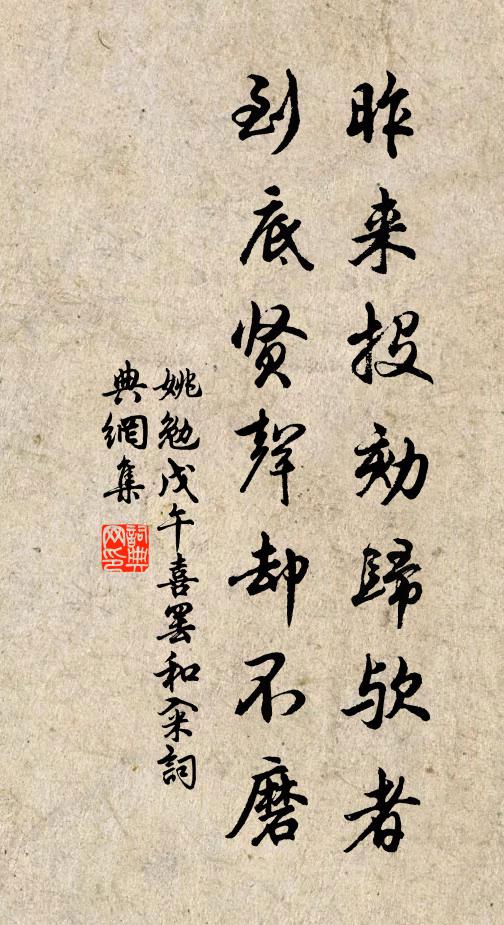 昨来投劾歸欤者
到底贤聲却不磨
姚勉戊午喜罢和籴詞
典網集
詞典网印